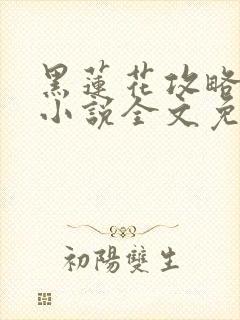 黑蓮花攻略
小說全文免
初陽雙生